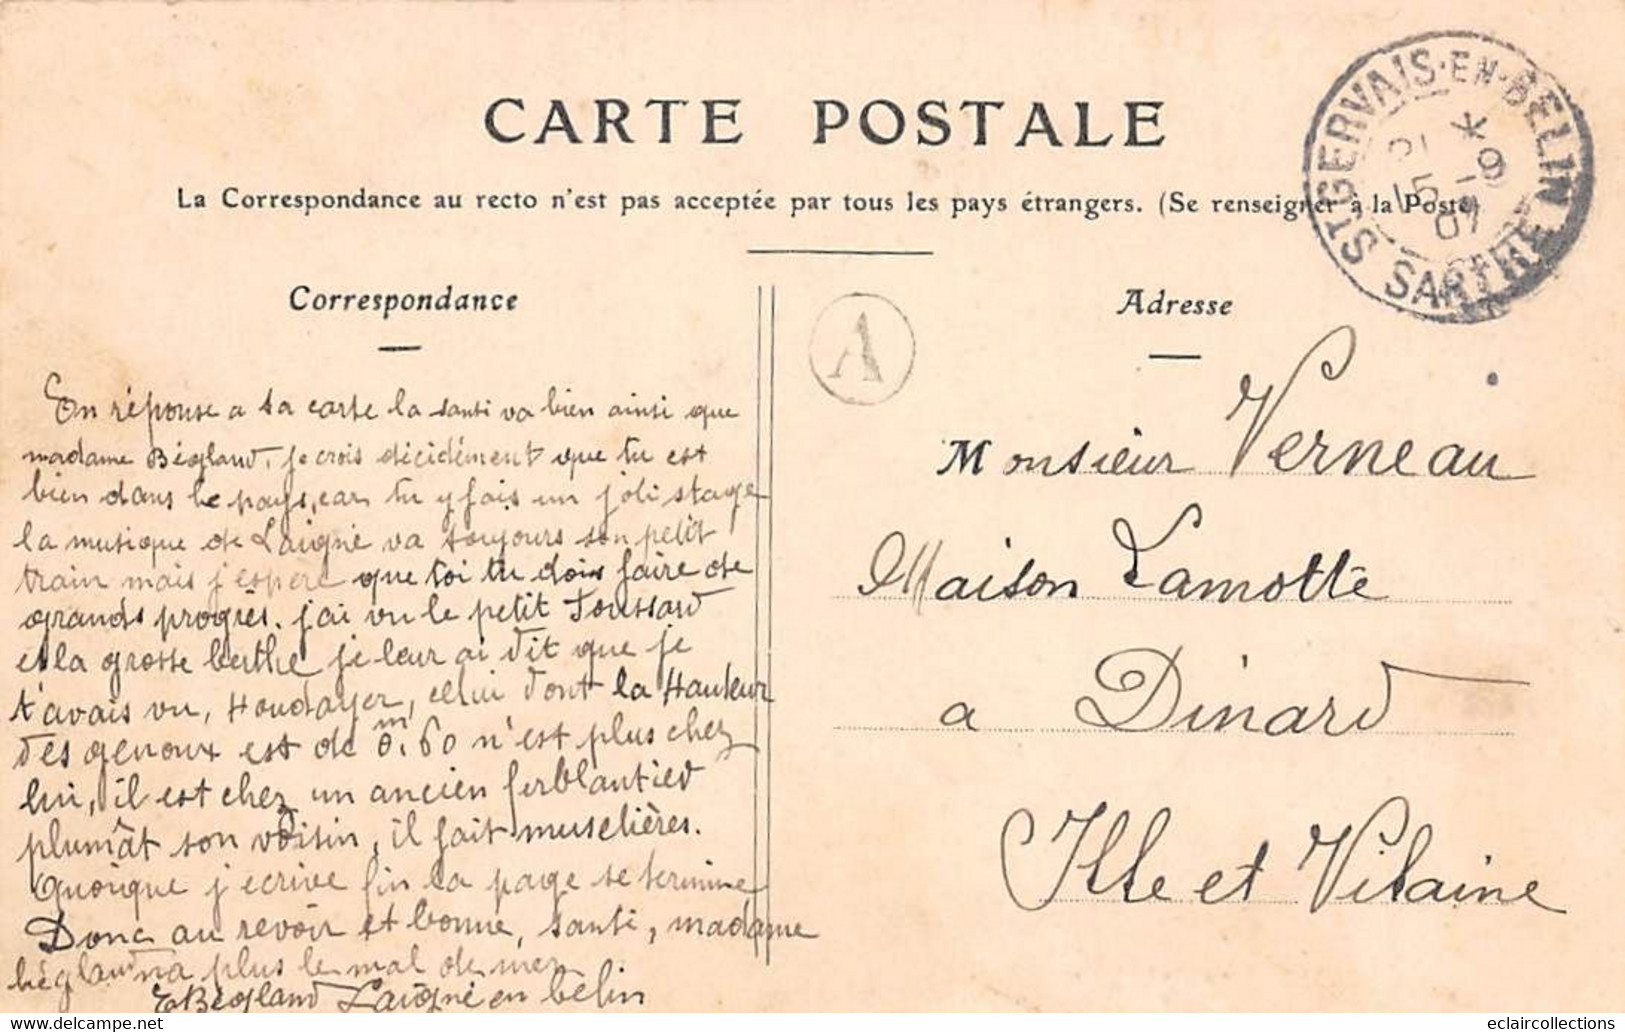 CARTE POSTALE
La Correspondance au recto n'est pas acceptée par tous les pays étrangers. (Se renseigner à la Poste)
ST GERVAIS-EN-BELIN
SARTHE
15 -9
07
Correspondance
En réponse a ta carte la santi va bien ainsi que
madame Bégland, je crois décidément que tu est
bien dans le pays, car tu y fais un joli stage
la musique de Laigné va toujours son petit
train mais j'espere que toi tu dois faire de
grands progrès. j'ai vu le petit Toussard
et la grosse berthe je leur ai dit que je
t'avais vu, Houdayer, celui dont la Hauteur
des genoux est de 0m.60 n'est plus chez
lui, il est chez un ancien ferblantier
plumât son voisin, il fait muselières.
Quoique j'ecrive fin la page se termine
Donc au revoir et bonne, santi, madame
bégland n'a plus le mal de mer
E Bégland Laigné en belin
A
Adresse
Monsieur Verneau
Maison Lamotte
a Dinard
Ille et Vilaine
eclaircollections